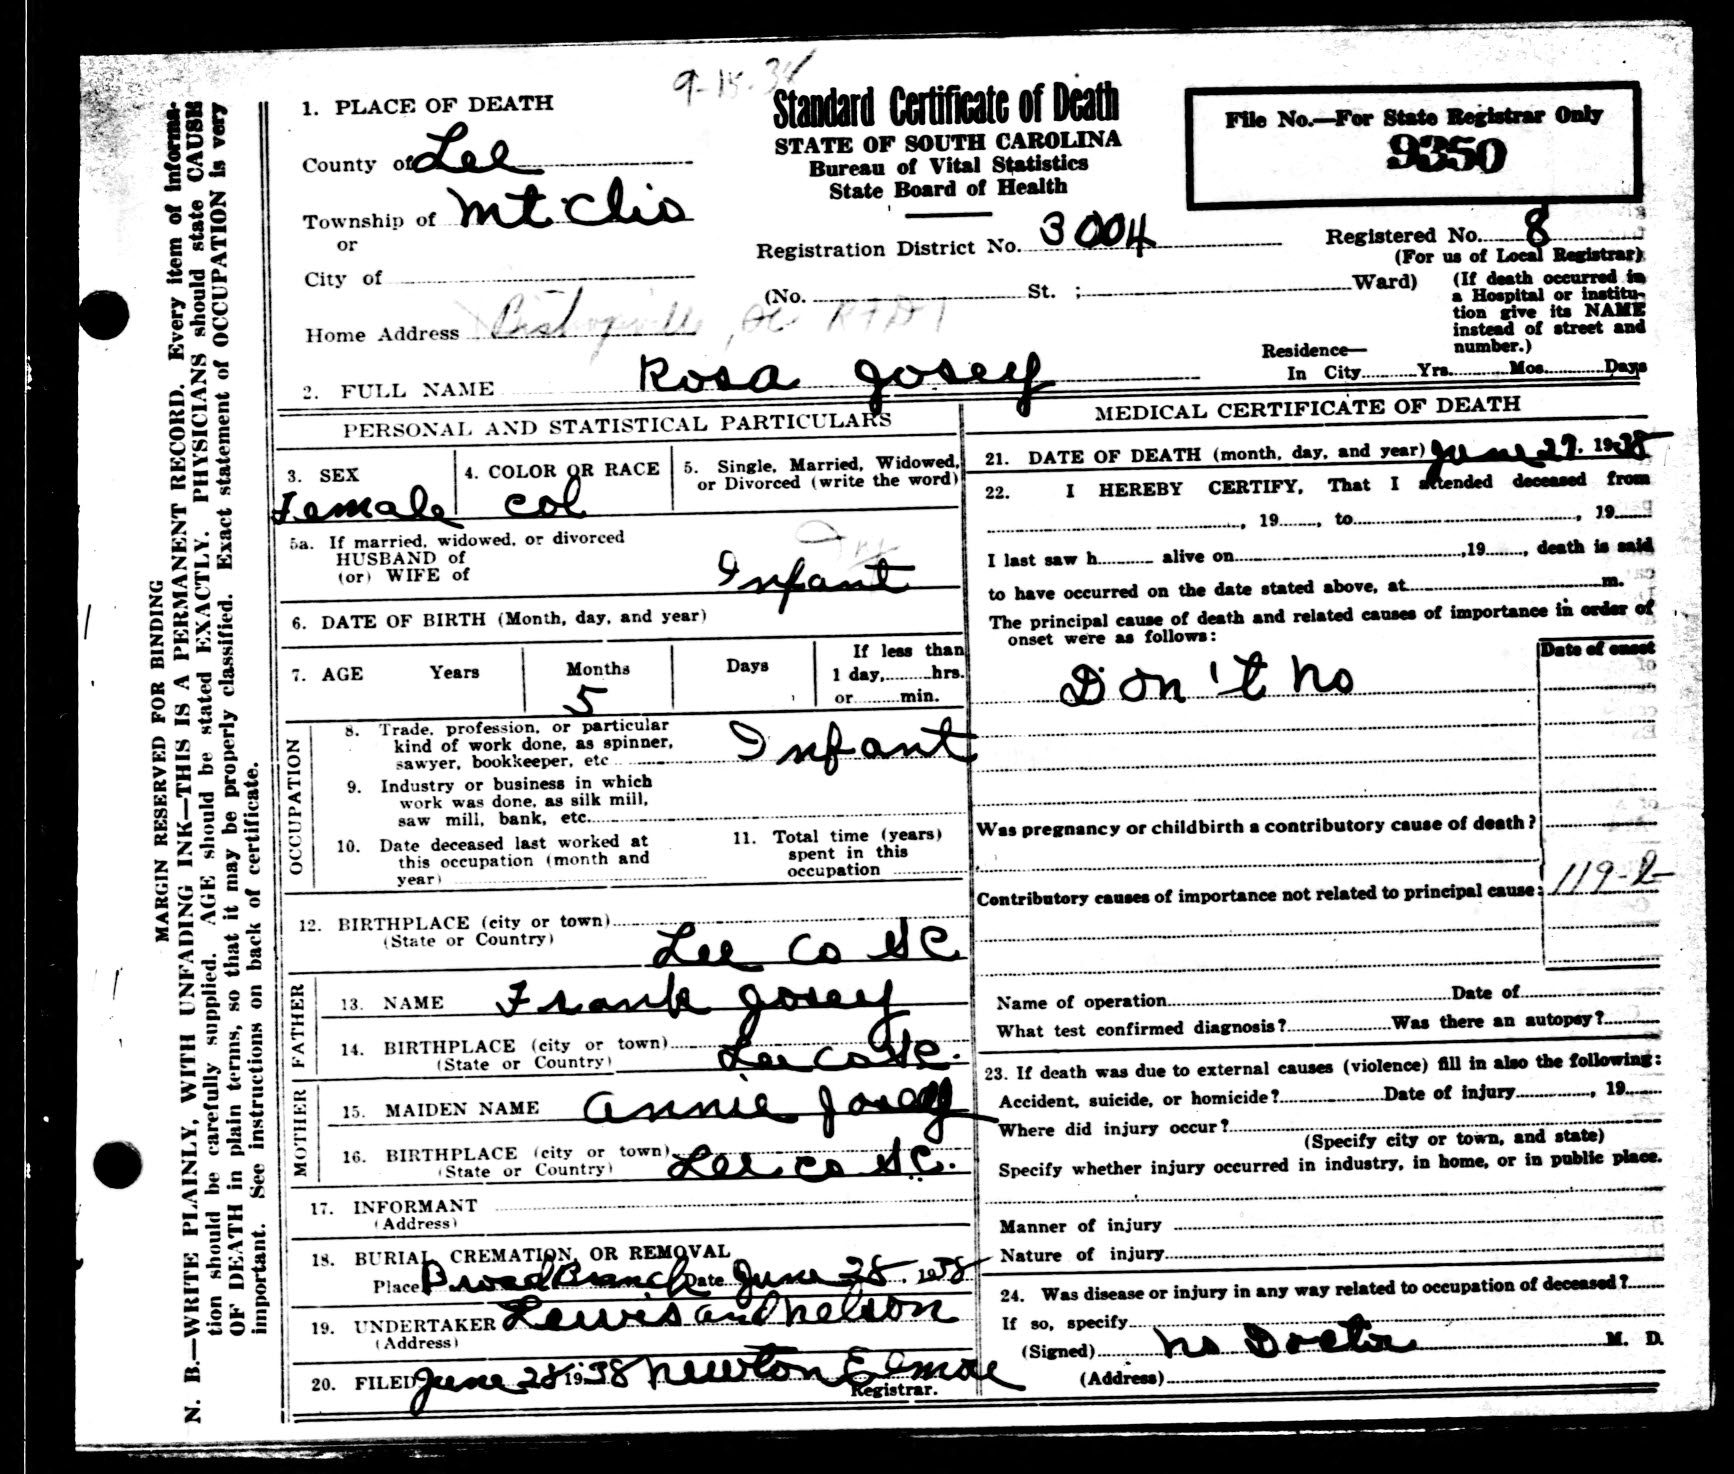 9-15-38
Standard Certificate of Death
STATE OF SOUTH CAROLINA
Bureau of Vital Statistics
State Board of Health
File No.—For State Registrar Only
9350
1. PLACE OF DEATH
County of Lee
Township of Mt Clio
or
City of
Registration District No. 3004
Registered No. 8
(For us of Local Registrar)
(No. St. ; Ward)
(If death occurred in
a Hospital or institu-
tion give its NAME
instead of street and
number.)
Home Address Bishopville, SC RFD 1
Residence—
In City Yrs. Mos. Days
2. FULL NAME Rosa Josey
PERSONAL AND STATISTICAL PARTICULARS
3. SEX
Female
4. COLOR OR RACE
Col
5. Single, Married, Widowed,
or Divorced (write the word)
5a. If married, widowed, or divorced
HUSBAND of
(or) WIFE of
Infant
6. DATE OF BIRTH (Month, day, and year)
7. AGE Years Months Days
5
If less than
1 day, hrs.
or min.
OCCUPATION
8. Trade, profession, or particular
kind of work done, as spinner,
sawyer, bookkeeper, etc. Infant
9. Industry or business in which
work was done, as silk mill,
saw mill, bank, etc.
10. Date deceased last worked at
this occupation (month and
year)
11. Total time (years)
spent in this
occupation
12. BIRTHPLACE (city or town)
(State or Country) Lee Co SC
FATHER
13. NAME Frank Josey
14. BIRTHPLACE (city or town)
(State or Country) Lee Co SC.
MOTHER
15. MAIDEN NAME Annie Josey
16. BIRTHPLACE (city or town)
(State or Country) Lee Co SC.
17. INFORMANT
(Address)
18. BURIAL, CREMATION, OR REMOVAL
Place Broad Branch Date June 28, 1938
19. UNDERTAKER Lewis and Nelson
(Address)
20. FILED June 28 1938 Newton Elmore
Registrar.
MEDICAL CERTIFICATE OF DEATH
21. DATE OF DEATH (month, day, and year) June 27, 1938
22. I HEREBY CERTIFY, That I attended deceased from
, 19 , to , 19
I last saw h alive on ,19 , death is said
to have occurred on the date stated above, at m.
The principal cause of death and related causes of importance in order of
onset were as follows:
Date of onset
Don't no
Was pregnancy or childbirth a contributory cause of death?
Contributory causes of importance not related to principal cause:
119-
Name of operation Date of
What test confirmed diagnosis? Was there an autopsy?
23. If death was due to external causes (violence) fill in also the following:
Accident, suicide, or homicide? Date of injury , 19
Where did injury occur?
(Specify city or town, and state)
Specify whether injury occurred in industry, in home, or in public place.
Manner of injury
Nature of injury
24. Was disease or injury in any way related to occupation of deceased?
If so, specify
(Signed) No Doctor M. D.
(Address)
MARGIN RESERVED FOR BINDING
N. B.—WRITE PLAINLY, WITH UNFADING INK—THIS IS A PERMANENT RECORD. Every item of informa-
tion should be carefully supplied. AGE should be stated EXACTLY. PHYSICIANS should state CAUSE
OF DEATH in plain terms, so that it may be properly classified. Exact statement of OCCUPATION is very
important. See instructions on back of certificate.